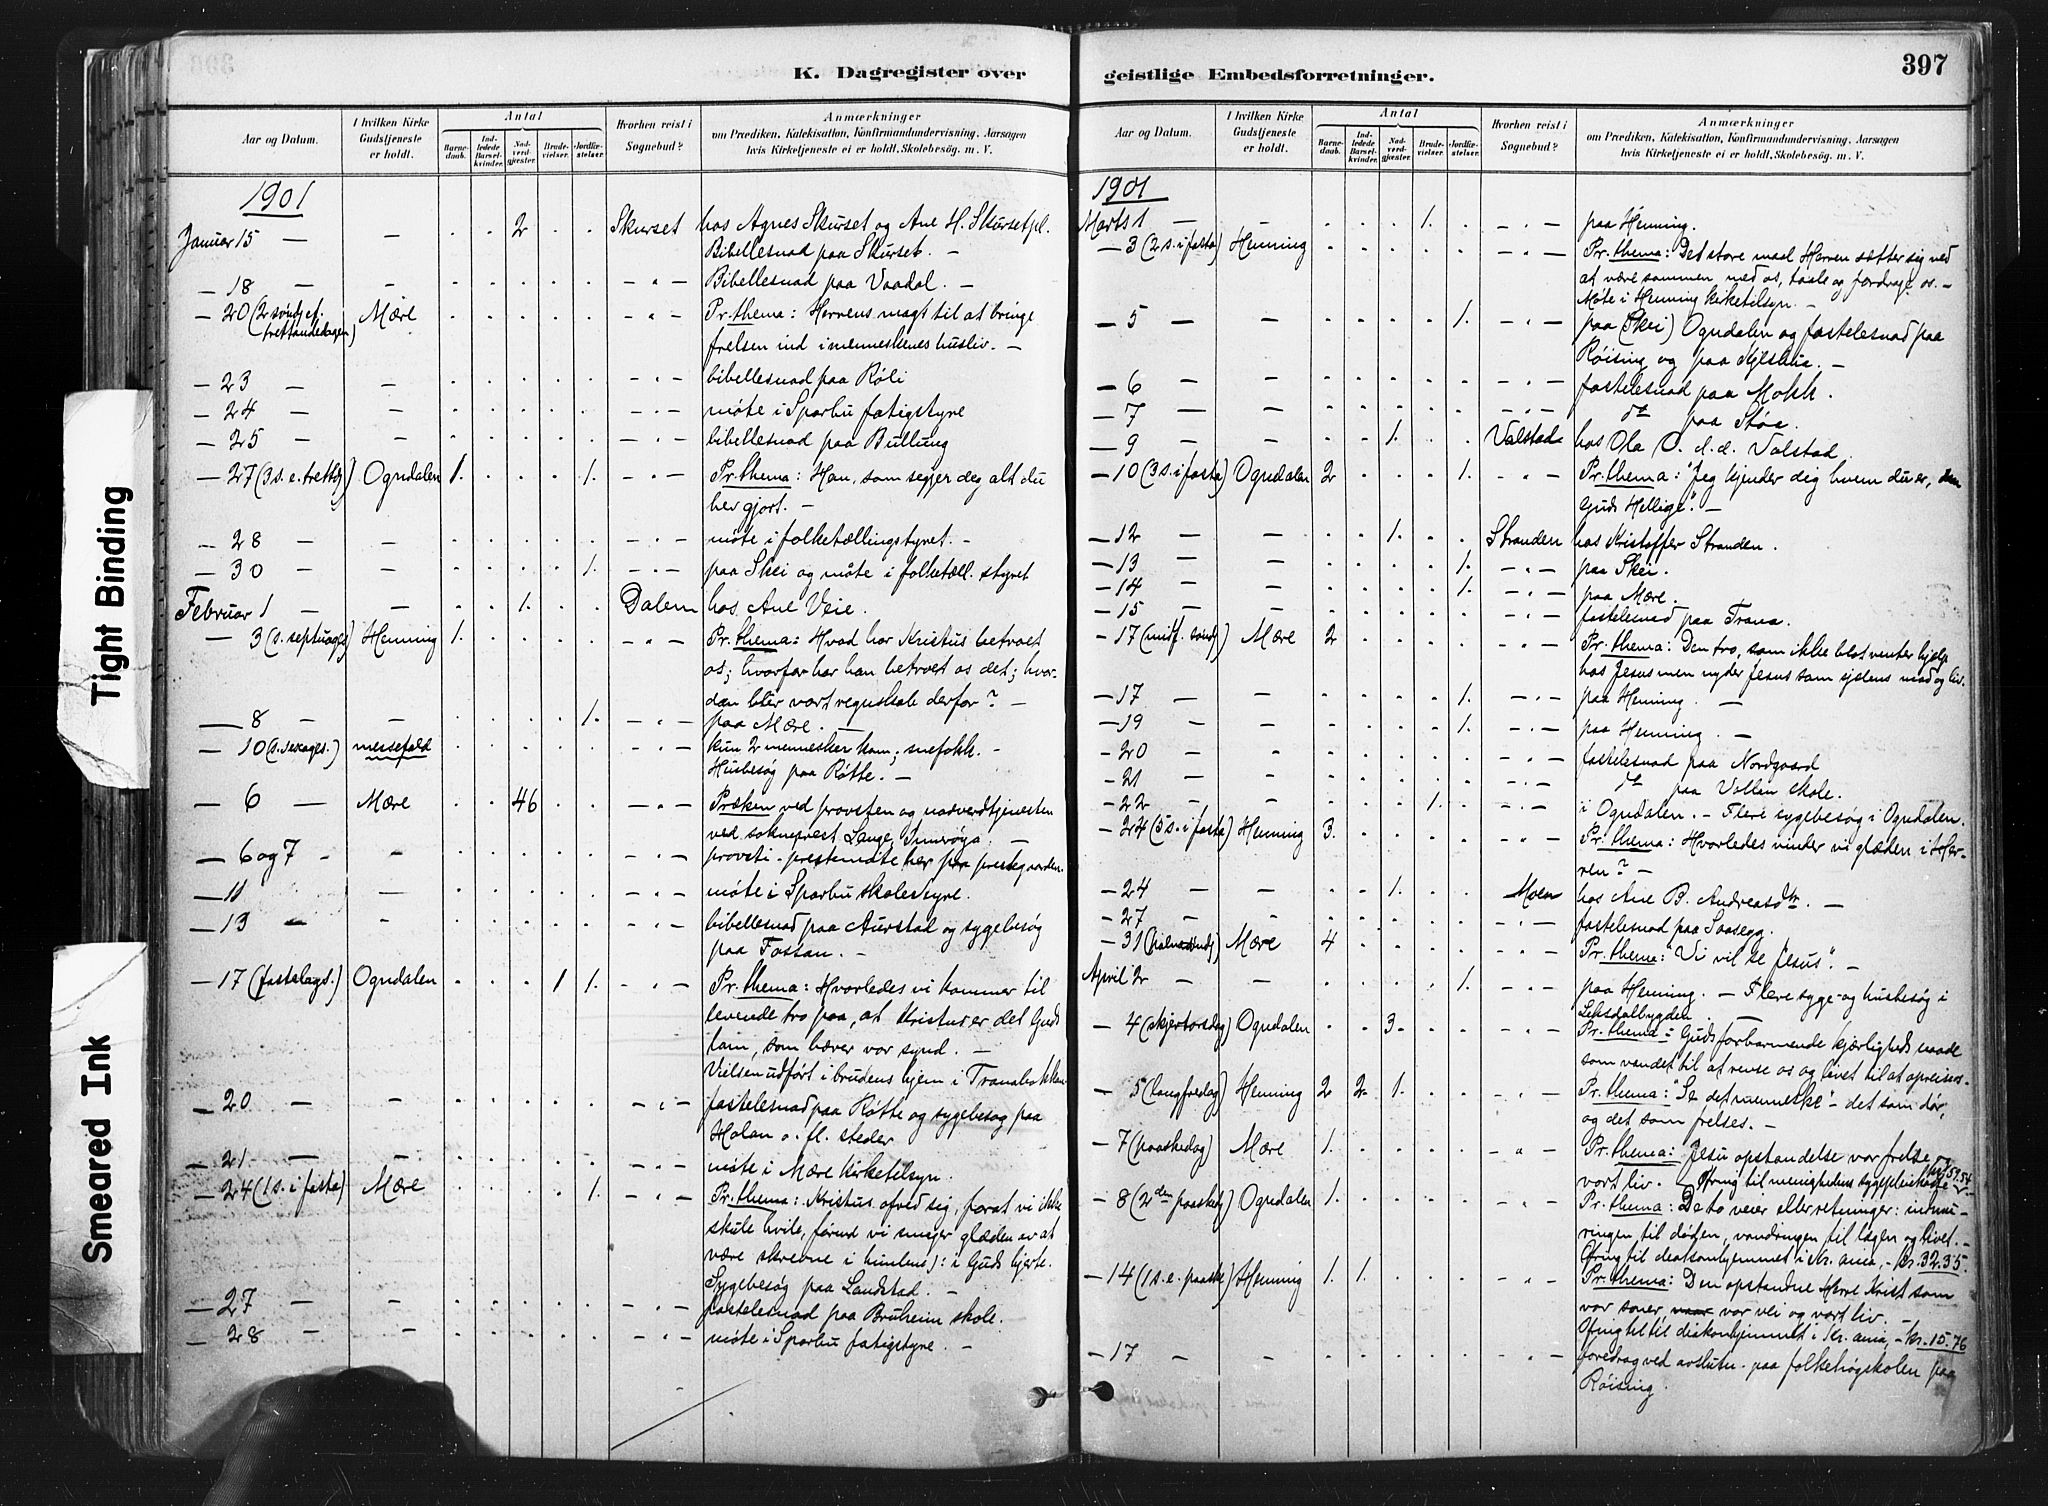 K. Dagregister over
Aar og Datum.
I hvilken Kirke Gudstjeneste er holdt.
Antal
Barnedaab.
Indledede Barselkvinder.
Nadverdgjester.
Brudevielser.
Jordfæstelser.
Hvorhen reist i Sognebud?
Anmærkninger
om Prædiken, Katekisation, Konfirmandundervisning, Aarsagen
hvis Kirketjeneste ei er holdt, Skolebesøg. m. V.
1901
Januar 15 — — . . 2 . . Skurset hos Agnes Skurset og Ane H. Skursetpl.
Bibellesnad paa Skurset. —
— 18 — — Bibellesnad paa Vaadal. —
— 20 (2 søndg ef. trettandedagen) Mære Pr. thema: Herrens magt til at bringe
frelsen ind i menneskenes husliv. —
— 23 — — bibellesnad paa Røli
— 24 — — møte i Sparbu fatigstyre
— 25 — — bibellesnad paa Bullung
— 27 (3 s. e. trettdg) Ogndalen 1. . . . 1. Pr. thema: Han, som segjer deg alt du
hev gjort. —
— 28 — — møte i folketællingstyret. —
— 30 — — 1. paa Skei og møte i folketæll. styret
Februar 1 — — . . 1. . . Dalem hos Ane Veie.
— 3 (s. septuages) Henning 1. Pr. thema: Hvad har Kristus betroet
os; hvorfor har han betroet os det; hvor-
dan blir vort regnskab derfor? —
— 8 — — 1. paa Mære. —
— 10 (s. sexages.) messefald kun 2 mennesker kom; snefokk. —
Husbesøg paa Røtte. —
— 6 — Mære . . 46 . . Præken ved provsten og nadverdtjenesten
ved sokneprest Lange, Inderøya. —
— 6 og 7 — — provsti-prestemøte her paa prestegaarden.
— 11 — møte i Sparbu skolestyre.
— 13 — — bibellesnad paa Aurstad og sygebesøg
paa Fossan. —
— 17 (fastelags.) Ogndalen . . . 1 1. Pr. thema: Hvorledes vi kommer til
levende tro paa, at Kristus er det Guds
lam, som bærer vor synd. —
Vielsen udført i brudens hjem i Tranabakken
— 20 — — fastelesnad paa Røtte og sygebesøg paa
Holan o. fl. steder
— 21 — — møte i Mære kirketilsyn.
— 24 (1 s. i fasta) Mære 1. Pr. thema: Kristus ofred sig, forat vi ikke
skule hvile, førend vi smager glæden av at
være skrevne i himlens): i Guds hjerte.
Sygebesøg paa Landstad. —
— 27 — — fastelesnad paa Bruheim skole.
— 28 — — møte i Sparbu fatigstyre. —
geistlige Embedsforretninger.
397
Aar og Datum.
I hvilken Kirke Gudstjeneste er holdt.
Antal
Barnedaab.
Indledede Barselkvinder.
Nadverdgjester.
Brudevielser.
Jordfæstelser.
Hvorhen reist i Sognebud?
Anmærkninger
om Prædiken, Katekisation, Konfirmandundervisning, Aarsagen
hvis Kirketjeneste ei er holdt, Skolebesøg. m. V.
1901
Marts 1 — — . . . 1. . paa Henning.
— 3 (2 s. i fasta) Henning Pr. thema: Det store maal Herren sætter sig ved
at være sammen med os, taale og fordrage os. —
Møte i Henning kirketilsyn. —
— 5 — — 1. paa (Skei) Ogndalen og fastelesnad paa
Røising og paa
— 6 — — fastelesnad paa Mokk.
— 7 — — do paa Støa.
— 9 — — . . 1. . . Valstad hos Ola O. d. d. Valstad.
— 10 (3 s. i fasta) Ogndalen 2 . . . 1. Pr. thema: "Jeg kjender dig hvem du er, den
Guds Hellige." —
— 12 — — . . 1. . . Stranden hos Kristoffer Stranden.
— 13 — — 1. paa Skei.
— 14 — — 1. paa Mære.
— 15 — — fastelesnad paa Trana.
— 17 (midf. sønd) Mære 2 Pr. thema: Den tro, som ikke blot venter hjælp
hos Jesus men nyder Jesus som sjælens mad og liv.
— 17 — — 1. paa Henning. —
— 19 — — 1. paa Henning. —
— 20 — fastelesnad paa Nordgaard
— 21 — do paa Vollan skole.
— 22 — — 1. i Ogndalen. — Flere sygebesøg i Ogndalen.
— 24 (5 s. i fasta) Henning 3. Pr. thema: Hvorledes vinder vi glæden i Her-
ren? —
— 24 — — . . 1. . . Moen hos Ane B. Andreasdtr. —
— 27 — fastelesnad paa Saasegg.
— 31 (palmesøndg) Mære 4 Pr. thema: "Vi vil se Jesus". —
April 2 — — 1. paa Henning. — Flere syge- og husbesøg i
Leksdalbygden. —
— 4 (skjertorsdag) Ogndalen . . 3 Pr. thema: Guds forbarmende kjærligheds naade
som vandet til at rense os og livet til at opreise os.
— 5 (langfredag) Henning 2 2 1. Pr. thema: "Se det menneske" — det som dør,
og det som frelses. —
— 7 (paaskedag) Mære 1. Pr. thema: Jesu opstandelse vor frelse og
vort liv. Ofring til menighedens sygepleiekasse kr. 59.54
— 8 (2den paaskedg) Ogndalen 1. Pr. thema: De to veier eller retninger:
ringen til døden, vandringen til lægen og livet. —
Ofring til diakonhjemmet i Kr.ania, — kr. 32.35.
— 14 (1 s. e. paaske) Henning 1. 1. Pr. thema: Den opstandne Herre Krist som
vor soner vor vei og vort liv. —
Ofring til diakonhjemmet i Kr.ania, — kr. 15.76
— 17 — — foredrag ved avslutn. paa folkehøgskolen paa
Røising.
Tight Binding
Smeared Ink